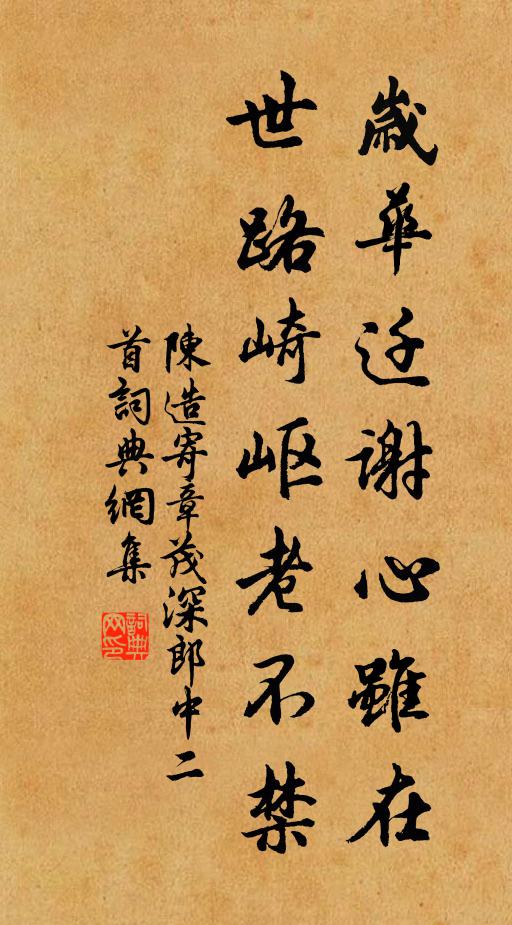 歲華迁謝心雖在
世路崎岖老不禁
陳造寄章茂深郎中二
首詞典網集
詞典
网印